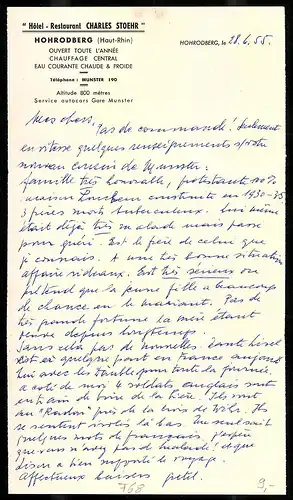 " Hôtel - Restaurant CHARLES STOEHR "
HOHRODBERG (Haut-Rhin)
OUVERT TOUTE L'ANNÉE
CHAUFFAGE CENTRAL
EAU COURANTE CHAUDE & FROIDE
Téléphone : MUNSTER 190
Altitude 800 mètres
Service autocars Gare Munster
HOHRODBERG, le 28.6.55.
Mes chers,
Pas de commande! Seulement
en vitesse quelques renseignements
nouveau cousin de Munster:
famille très honorable, protestante 100%
maison construite en 1930-35
3 frères morts tuberculeux. Lui même
était déjà très malade mais passe
pour guéri. Est le frère de celui que
je connais. A une très bonne situation
affaire rideaux. Est très sérieux on
prétend que la jeune fille a beaucoup
de chance en le mariant. Pas de
très grande fortune la mère étant
veuve depuis longtemps.
Sans cela pas de nouvelles.
est en quelque part en France aujourd
hui avec les pour toute la journée.
a côté de moi 4 soldats anglais sont
en train de boire de la bière! Ils sont
au "Radar" près de la croix de Wihr. Ils
se sentent isolés là bas. Un seul sait
quelques mots de français. J'espère
que vous n'avez pas de malade! et que
a bien supporté le voyage.
Affectueux baisers
768
9,-